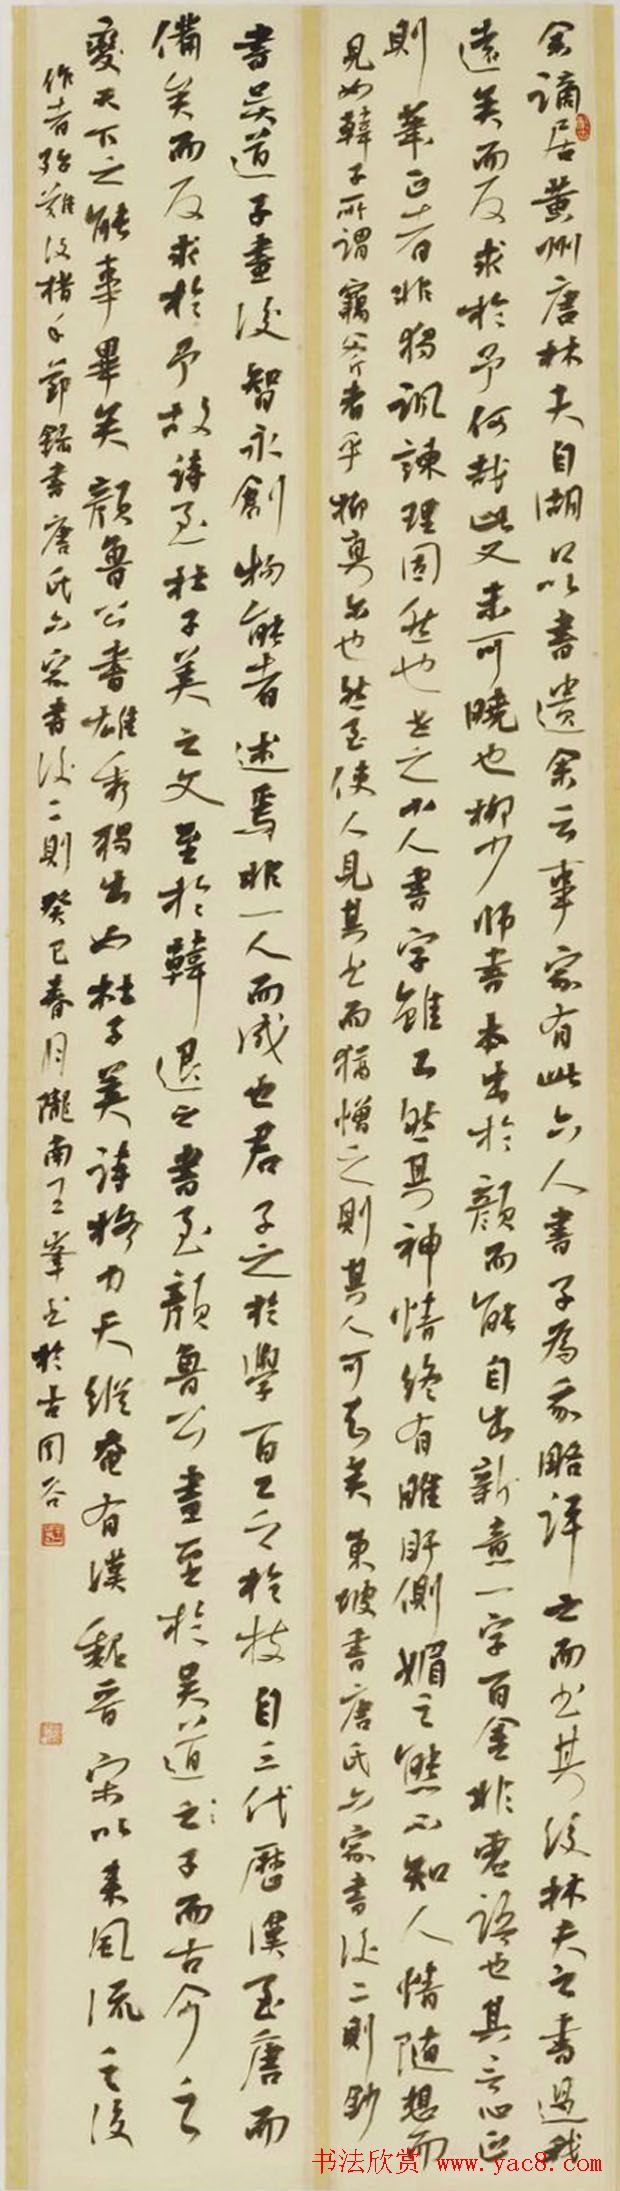 余謫居黄州唐林夫自湖口以書遺余云事家有此六人書子為我略評之而书其後林夫之書過我
遠矣而反求於予何哉此又未可曉也柳少師書本出於顏而能自出新意一字百金非虛語也其言心正
則筆正者非獨諷諫理固然也世之小人書字雖工然其神情終有睢盱側媚之態不知人情隨想而
見如韓子所謂竊斧者乎抑真尔也然至使人見其书而猶憎之則其人可知矣東坡書唐氏六家書後二則鈔
書吳道子畫後智永創物能者述焉非一人而成也君子之於學百工之於技自三代歷漢至唐而
備矣而反求於予故詩至杜子美之文至於韓退之書至顏魯公畫至於吳道之子而古今之
變天下之能事畢矣顏魯公書雄秀獨出如杜子美詩格力天縱奄有漢魏晉宋以來風流之後
作者殆難復措手節錄書唐氏六家書後二則癸巳春月隴南王峯书於古同谷
书法欣赏 www.yac8.com